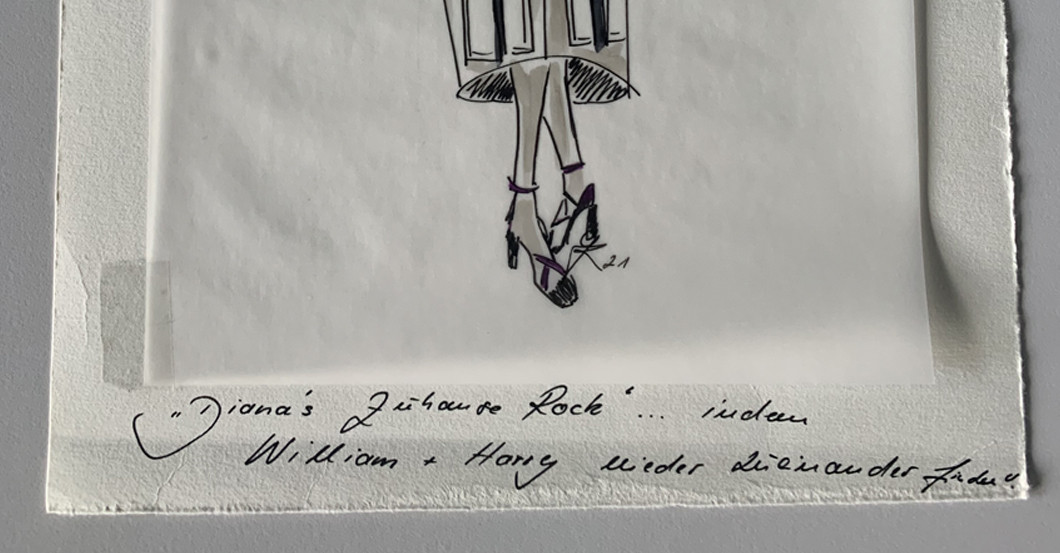 21
„Diana's Zuhause Rock“... indem
William + Harry wieder zueinander finden"